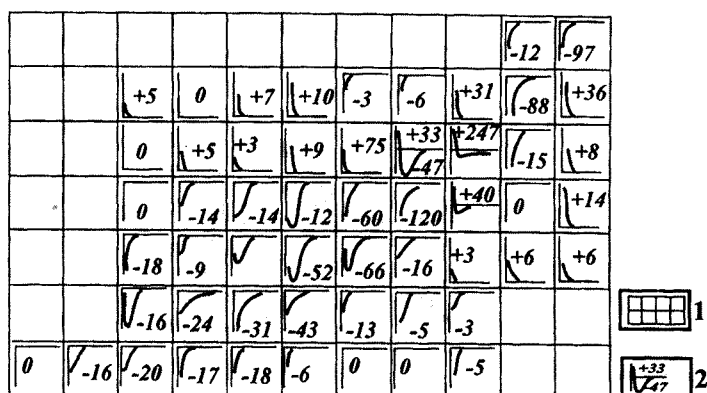 -12 -97
+5 0 +7 +10 -3 -6 +31 -88 +36
0 +5 +3 +9 +75 +33 -47 +247 -15 +8
0 -14 -14 -12 -60 -120 +40 0 +14
-18 -9 -52 -66 -16 +3 +6 +6
-16 -24 -31 -43 -13 -5 -3
1
0 -16 -20 -17 -18 -6 0 0 -5
+33 -47 2